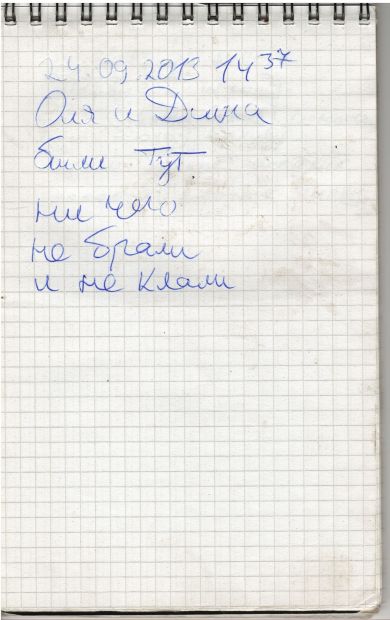 24.09.2013 14 37
Оля и Дина
были тут
ни чего
не брали
и не клали